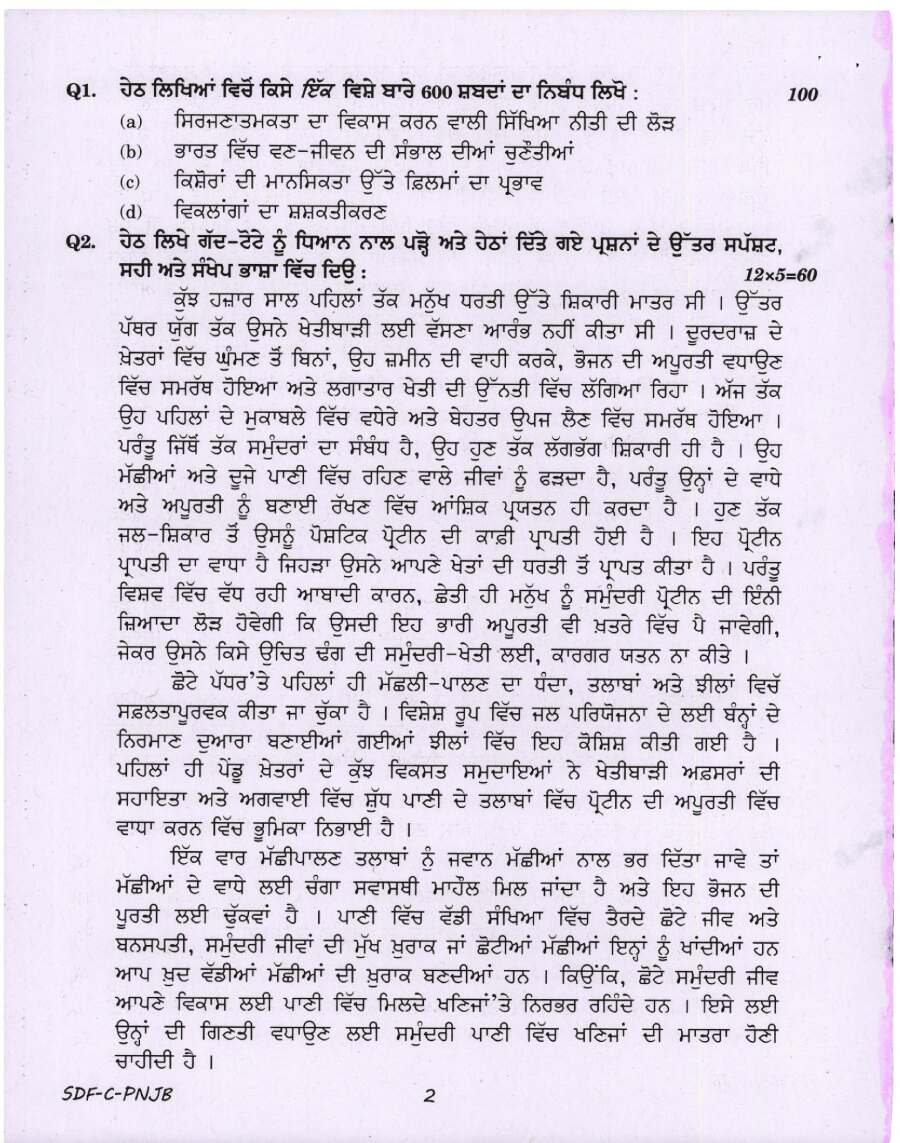 Q1. ਹੇਠ ਲਿਖਿਆਂ ਵਿਚੋਂ ਕਿਸੇ ਇੱਕ ਵਿਸ਼ੇ ਬਾਰੇ 600 ਸ਼ਬਦਾਂ ਦਾ ਨਿਬੰਧ ਲਿਖੋ : 100
(a) ਸਿਰਜਣਾਤਮਕਤਾ ਦਾ ਵਿਕਾਸ ਕਰਨ ਵਾਲੀ ਸਿੱਖਿਆ ਨੀਤੀ ਦੀ ਲੋੜ
(b) ਭਾਰਤ ਵਿੱਚ ਵਣ-ਜੀਵਨ ਦੀ ਸੰਭਾਲ ਦੀਆਂ ਚੁਣੌਤੀਆਂ
(c) ਕਿਸ਼ੋਰਾਂ ਦੀ ਮਾਨਸਿਕਤਾ ਉੱਤੇ ਫ਼ਿਲਮਾਂ ਦਾ ਪ੍ਰਭਾਵ
(d) ਵਿਕਲਾਂਗਾਂ ਦਾ ਸ਼ਸ਼ਕਤੀਕਰਣ
Q2. ਹੇਠ ਲਿਖੇ ਗੱਦ-ਟੋਟੇ ਨੂੰ ਧਿਆਨ ਨਾਲ ਪੜ੍ਹੋ ਅਤੇ ਹੇਠਾਂ ਦਿੱਤੇ ਗਏ ਪ੍ਰਸ਼ਨਾਂ ਦੇ ਉੱਤਰ ਸਪੱਸ਼ਟ,
ਸਹੀ ਅਤੇ ਸੰਖੇਪ ਭਾਸ਼ਾ ਵਿੱਚ ਦਿਉ : 12×5=60
ਕੁੱਝ ਹਜ਼ਾਰ ਸਾਲ ਪਹਿਲਾਂ ਤੱਕ ਮਨੁੱਖ ਧਰਤੀ ਉੱਤੇ ਸ਼ਿਕਾਰੀ ਮਾਤਰ ਸੀ । ਉੱਤਰ
ਪੱਥਰ ਯੁੱਗ ਤੱਕ ਉਸਨੇ ਖੇਤੀਬਾੜੀ ਲਈ ਵੱਸਣਾ ਆਰੰਭ ਨਹੀਂ ਕੀਤਾ ਸੀ । ਦੂਰਦਰਾਜ਼ ਦੇ
ਖ਼ੇਤਰਾਂ ਵਿੱਚ ਘੁੰਮਣ ਤੋਂ ਬਿਨਾਂ, ਉਹ ਜ਼ਮੀਨ ਦੀ ਵਾਹੀ ਕਰਕੇ, ਭੋਜਨ ਦੀ ਅਪੂਰਤੀ ਵਧਾਉਣ
ਵਿੱਚ ਸਮਰੱਥ ਹੋਇਆ ਅਤੇ ਲਗਾਤਾਰ ਖੇਤੀ ਦੀ ਉੱਨਤੀ ਵਿੱਚ ਲੱਗਿਆ ਰਿਹਾ । ਅੱਜ ਤੱਕ
ਉਹ ਪਹਿਲਾਂ ਦੇ ਮੁਕਾਬਲੇ ਵਿੱਚ ਵਧੇਰੇ ਅਤੇ ਬੇਹਤਰ ਉਪਜ ਲੈਣ ਵਿੱਚ ਸਮਰੱਥ ਹੋਇਆ ।
ਪਰੰਤੂ ਜਿੱਥੋਂ ਤੱਕ ਸਮੁੰਦਰਾਂ ਦਾ ਸੰਬੰਧ ਹੈ, ਉਹ ਹੁਣ ਤੱਕ ਲੱਗਭੱਗ ਸ਼ਿਕਾਰੀ ਹੀ ਹੈ । ਉਹ
ਮੱਛੀਆਂ ਅਤੇ ਦੂਜੇ ਪਾਣੀ ਵਿੱਚ ਰਹਿਣ ਵਾਲੇ ਜੀਵਾਂ ਨੂੰ ਫੜਦਾ ਹੈ, ਪਰੰਤੂ ਉਨ੍ਹਾਂ ਦੇ ਵਾਧੇ
ਅਤੇ ਅਪੂਰਤੀ ਨੂੰ ਬਣਾਈ ਰੱਖਣ ਵਿੱਚ ਆਂਸ਼ਿਕ ਪ੍ਰਯਤਨ ਹੀ ਕਰਦਾ ਹੈ । ਹੁਣ ਤੱਕ
ਜਲ-ਸ਼ਿਕਾਰ ਤੋਂ ਉਸਨੂੰ ਪੋਸ਼ਟਿਕ ਪ੍ਰੋਟੀਨ ਦੀ ਕਾਫ਼ੀ ਪ੍ਰਾਪਤੀ ਹੋਈ ਹੈ । ਇਹ ਪ੍ਰੋਟੀਨ
ਪ੍ਰਾਪਤੀ ਦਾ ਵਾਧਾ ਹੈ ਜਿਹੜਾ ਉਸਨੇ ਆਪਣੇ ਖੇਤਾਂ ਦੀ ਧਰਤੀ ਤੋਂ ਪ੍ਰਾਪਤ ਕੀਤਾ ਹੈ । ਪਰੰਤੂ
ਵਿਸ਼ਵ ਵਿੱਚ ਵੱਧ ਰਹੀ ਆਬਾਦੀ ਕਾਰਨ, ਛੇਤੀ ਹੀ ਮਨੁੱਖ ਨੂੰ ਸਮੁੰਦਰੀ ਪ੍ਰੋਟੀਨ ਦੀ ਇੰਨੀ
ਜ਼ਿਆਦਾ ਲੋੜ ਹੋਵੇਗੀ ਕਿ ਉਸਦੀ ਇਹ ਭਾਰੀ ਅਪੂਰਤੀ ਵੀ ਖ਼ਤਰੇ ਵਿੱਚ ਪੈ ਜਾਵੇਗੀ,
ਜੇਕਰ ਉਸਨੇ ਕਿਸੇ ਉਚਿਤ ਢੰਗ ਦੀ ਸਮੁੰਦਰੀ-ਖੇਤੀ ਲਈ, ਕਾਰਗਰ ਯਤਨ ਨਾ ਕੀਤੇ ।
ਛੋਟੇ ਪੱਧਰ'ਤੇ ਪਹਿਲਾਂ ਹੀ ਮੱਛਲੀ-ਪਾਲਣ ਦਾ ਧੰਦਾ, ਤਲਾਬਾਂ ਅਤੇ ਝੀਲਾਂ ਵਿਚੱ
ਸਫ਼ਲਤਾਪੂਰਵਕ ਕੀਤਾ ਜਾ ਚੁੱਕਾ ਹੈ । ਵਿਸ਼ੇਸ਼ ਰੂਪ ਵਿੱਚ ਜਲ ਪਰਿਯੋਜਨਾ ਦੇ ਲਈ ਬੰਨ੍ਹਾਂ ਦੇ
ਨਿਰਮਾਣ ਦੁਆਰਾ ਬਣਾਈਆਂ ਗਈਆਂ ਝੀਲਾਂ ਵਿੱਚ ਇਹ ਕੋਸ਼ਿਸ਼ ਕੀਤੀ ਗਈ ਹੈ ।
ਪਹਿਲਾਂ ਹੀ ਪੇਂਡੂ ਖ਼ੇਤਰਾਂ ਦੇ ਕੁੱਝ ਵਿਕਸਤ ਸਮੁਦਾਇਆਂ ਨੇ ਖੇਤੀਬਾੜੀ ਅਫ਼ਸਰਾਂ ਦੀ
ਸਹਾਇਤਾ ਅਤੇ ਅਗਵਾਈ ਵਿੱਚ ਸ਼ੁੱਧ ਪਾਣੀ ਦੇ ਤਲਾਬਾਂ ਵਿੱਚ ਪ੍ਰੋਟੀਨ ਦੀ ਅਪੂਰਤੀ ਵਿੱਚ
ਵਾਧਾ ਕਰਨ ਵਿੱਚ ਭੂਮਿਕਾ ਨਿਭਾਈ ਹੈ ।
ਇੱਕ ਵਾਰ ਮੱਛੀਪਾਲਣ ਤਲਾਬਾਂ ਨੂੰ ਜਵਾਨ ਮੱਛੀਆਂ ਨਾਲ ਭਰ ਦਿੱਤਾ ਜਾਵੇ ਤਾਂ
ਮੱਛੀਆਂ ਦੇ ਵਾਧੇ ਲਈ ਚੰਗਾ ਸਵਾਸਥੀ ਮਾਹੌਲ ਮਿਲ ਜਾਂਦਾ ਹੈ ਅਤੇ ਇਹ ਭੋਜਨ ਦੀ
ਪੂਰਤੀ ਲਈ ਢੁੱਕਵਾਂ ਹੈ । ਪਾਣੀ ਵਿੱਚ ਵੱਡੀ ਸੰਖਿਆ ਵਿੱਚ ਤੈਰਦੇ ਛੋਟੇ ਜੀਵ ਅਤੇ
ਬਨਸਪਤੀ, ਸਮੁੰਦਰੀ ਜੀਵਾਂ ਦੀ ਮੁੱਖ ਖ਼ੁਰਾਕ ਜਾਂ ਛੋਟੀਆਂ ਮੱਛੀਆਂ ਇਨ੍ਹਾਂ ਨੂੰ ਖਾਂਦੀਆਂ ਹਨ
ਆਪ ਖ਼ੁਦ ਵੱਡੀਆਂ ਮੱਛੀਆਂ ਦੀ ਖ਼ੁਰਾਕ ਬਣਦੀਆਂ ਹਨ । ਕਿਉਂਕਿ, ਛੋਟੇ ਸਮੁੰਦਰੀ ਜੀਵ
ਆਪਣੇ ਵਿਕਾਸ ਲਈ ਪਾਣੀ ਵਿੱਚ ਮਿਲਦੇ ਖਣਿਜਾਂ'ਤੇ ਨਿਰਭਰ ਰਹਿੰਦੇ ਹਨ । ਇਸੇ ਲਈ
ਉਨ੍ਹਾਂ ਦੀ ਗਿਣਤੀ ਵਧਾਉਣ ਲਈ ਸਮੁੰਦਰੀ ਪਾਣੀ ਵਿੱਚ ਖਣਿਜਾਂ ਦੀ ਮਾਤਰਾ ਹੋਣੀ
ਚਾਹੀਦੀ ਹੈ ।
SDF-C-PNJB 2